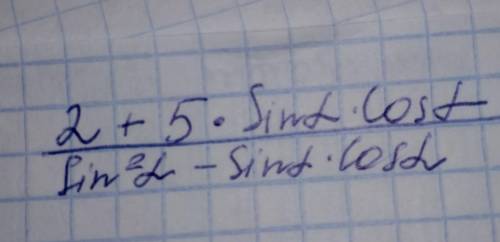 2 + 5 · Sinα · Cosα
Sin²α - Sinα · Cosα